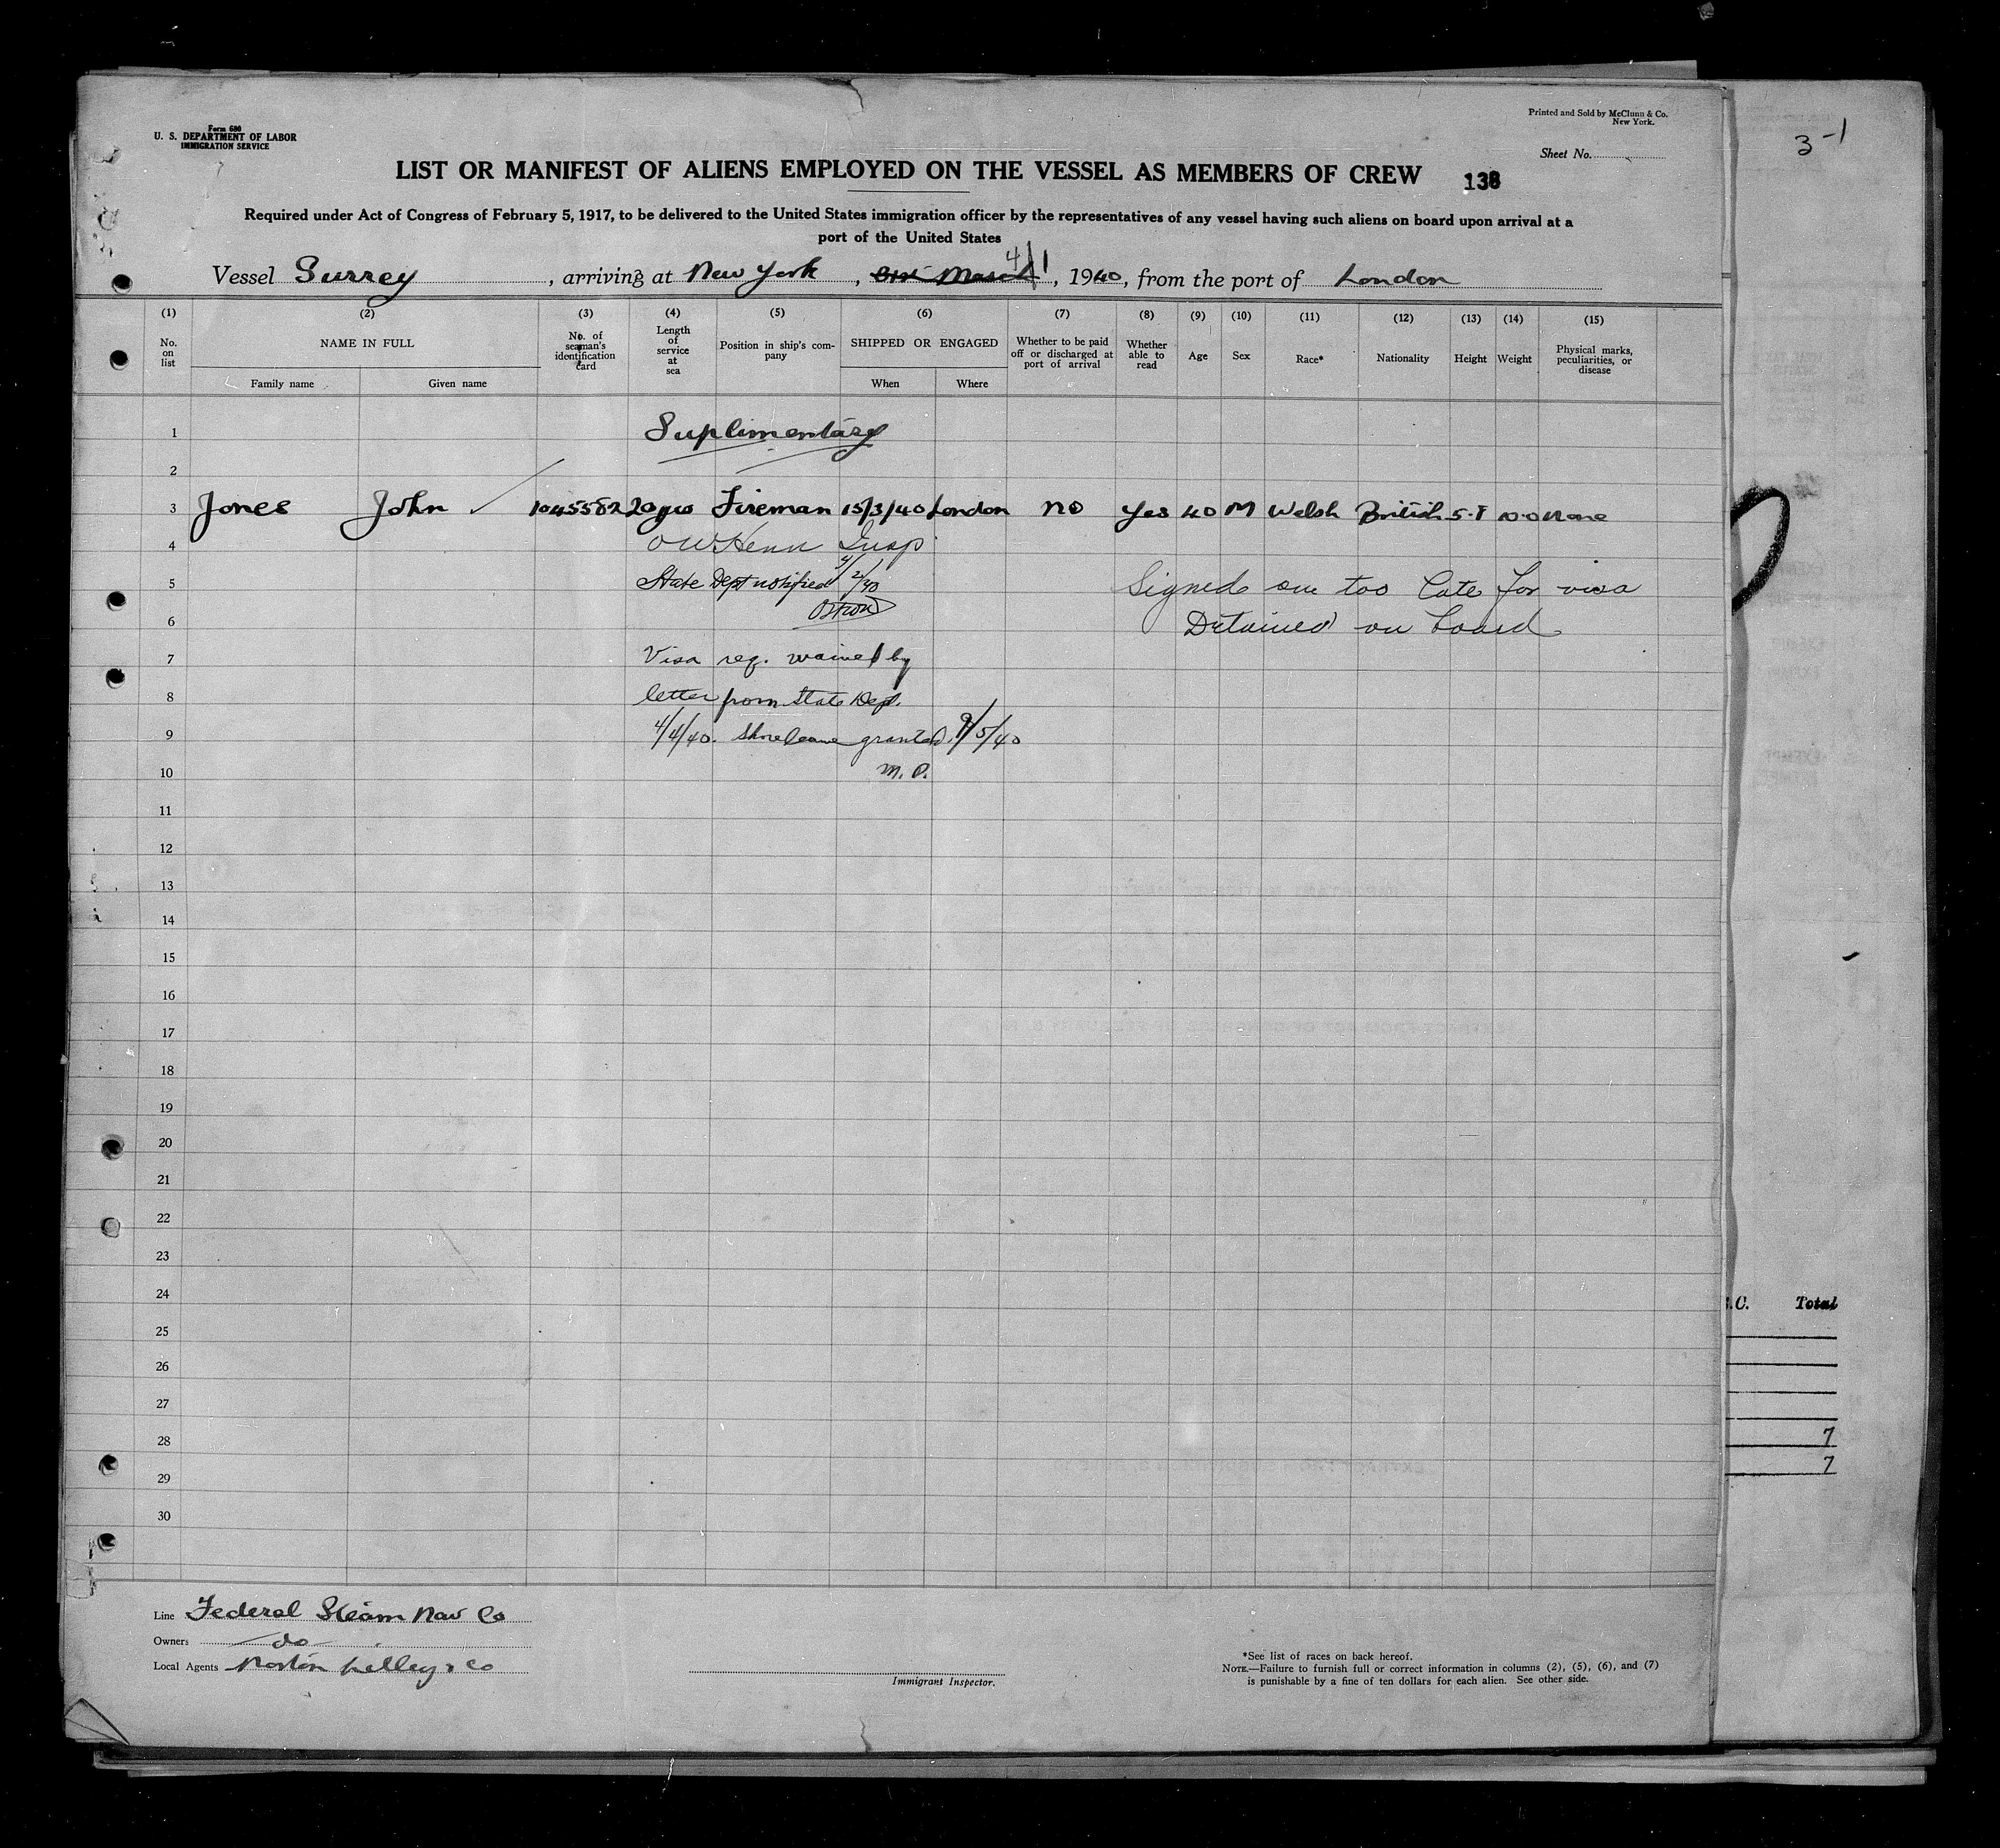 Form 680
U. S. DEPARTMENT OF LABOR
IMMIGRATION SERVICE
Printed and Sold by McClunn & Co.
New York.
Sheet No.
3-1
LIST OR MANIFEST OF ALIENS EMPLOYED ON THE VESSEL AS MEMBERS OF CREW 138
Required under Act of Congress of February 5, 1917, to be delivered to the United States immigration officer by the representatives of any vessel having such aliens on board upon arrival at a
port of the United States
Vessel Surrey, arriving at New York, March 4/1, 1940, from the port of London
(1) (2) (3) (4) (5) (6) (7) (8) (9) (10) (11) (12) (13) (14) (15)
No. on list NAME IN FULL No. of seaman's identification card Length of service at sea Position in ship's company SHIPPED OR ENGAGED Whether to be paid off or discharged at port of arrival Whether able to read Age Sex Race* Nationality Height Weight Physical marks, peculiarities, or disease
Family name Given name When Where
1 Suplimentary
2
3 Jones John 1045582 20 yrs Fireman 15/3/40 London no Yes 40 M Welsh British 5-8 10-0 None
4 Insp
5 State Dept notified 4/2/40 Signed on too late for visa
6 Detained on board
7 Visa req. waived by
8 letter from State Dept.
9 4/4/40. Shore leave granted. 4/5/40
10 M.D.
11
12
13
14
15
16
17
18
19
20
21
22
23
24
25
26
27
28
29
30
.C. Total
7
7
Line Federal Steam Nav Co
Owners do
Local Agents Norton Lilley & Co
Immigrant Inspector.
*See list of races on back hereof.
NOTE.—Failure to furnish full or correct information in columns (2), (5), (6), and (7)
is punishable by a fine of ten dollars for each alien. See other side.